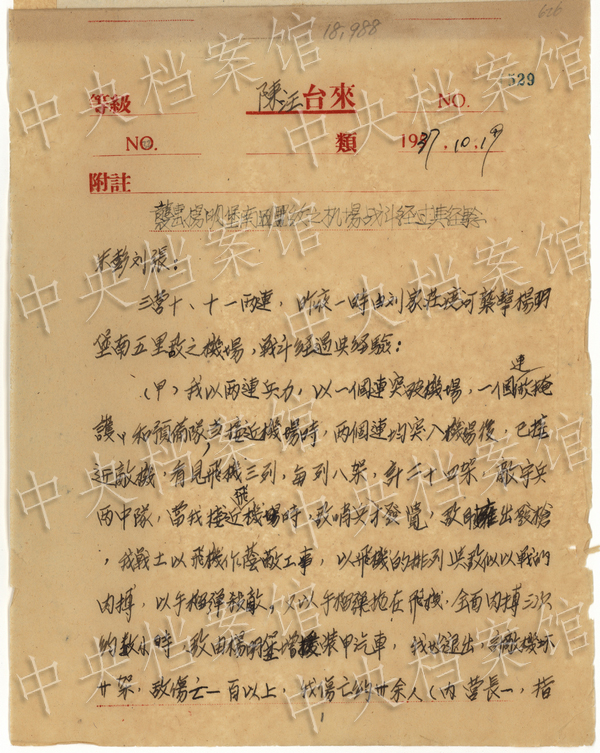 18,988
626
529
等級 陳汪台來 NO.
NO. 類 1937.10.19
附註
機場战斗经过与经验
朱彭刘張：
三营十、十一两連，昨夜一時由刘家莊渡河襲擊楊明
堡南五里敌之機場，戰斗経過與経驗：
（甲）我以两連兵力，以一個連突破機場，一個連做掩
護和預備隊，當接近機場時，两個連均突入機場後，已接
近敵機，有見飛機三列，每列八架，計二十四架，敵守兵
两中隊，當我接近飛機場時，敌哨兵才發覺，敌即擁出發槍
，我戰士以飛機作蔭蔽工事，以飛機的排列與敌以戰的
肉搏，以手榴彈殺敵，又以手榴彈拋在飛機，全面肉搏三次
約数小時，敌由楊明堡增援裝甲汽車，我始退出，敵機坏
廿架，敌傷亡一百以上，我傷亡約卅余人（內营長一，指
1
中央档案馆